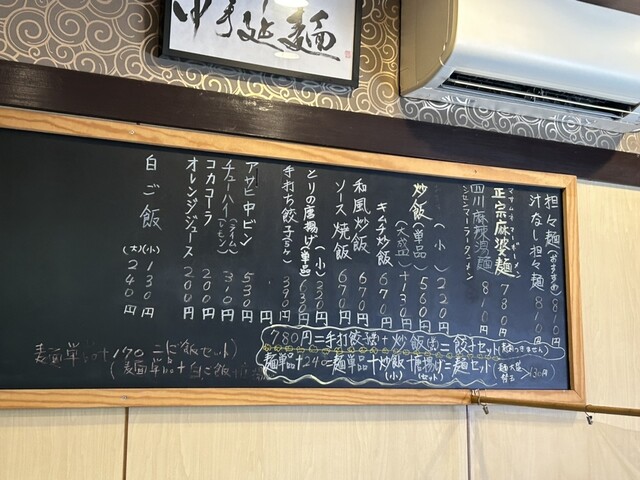 手延麺
担々麺(おすすめ) 810円
汁なし担々麺 810円
正宗麻婆麺 780円
四川麻辣湯麺 810円
炒飯 (小) 220円
(単品) 560円
(大盛) +130円
キムチ炒飯 670円
和風炒飯 670円
ソース焼飯 670円
とりの唐揚げ (小) 320円
(単品) 630円
手打ち餃子(5ケ) 390円
アサヒ中ビン 530円
チューハイ(ライム)(レモン) 310円
コカコーラ 200円
オレンジジュース 200円
白ご飯 (小) 130円
(大) 240円
780円=手打餃子+炒飯=餃子セット(麺はつきません)
麺単品+240=麺単品+炒飯(小)+唐揚げ(セット)=麺セット(麺大盛付き>130円)
麺単品+170=ご飯セット
(麺単品+白ご飯